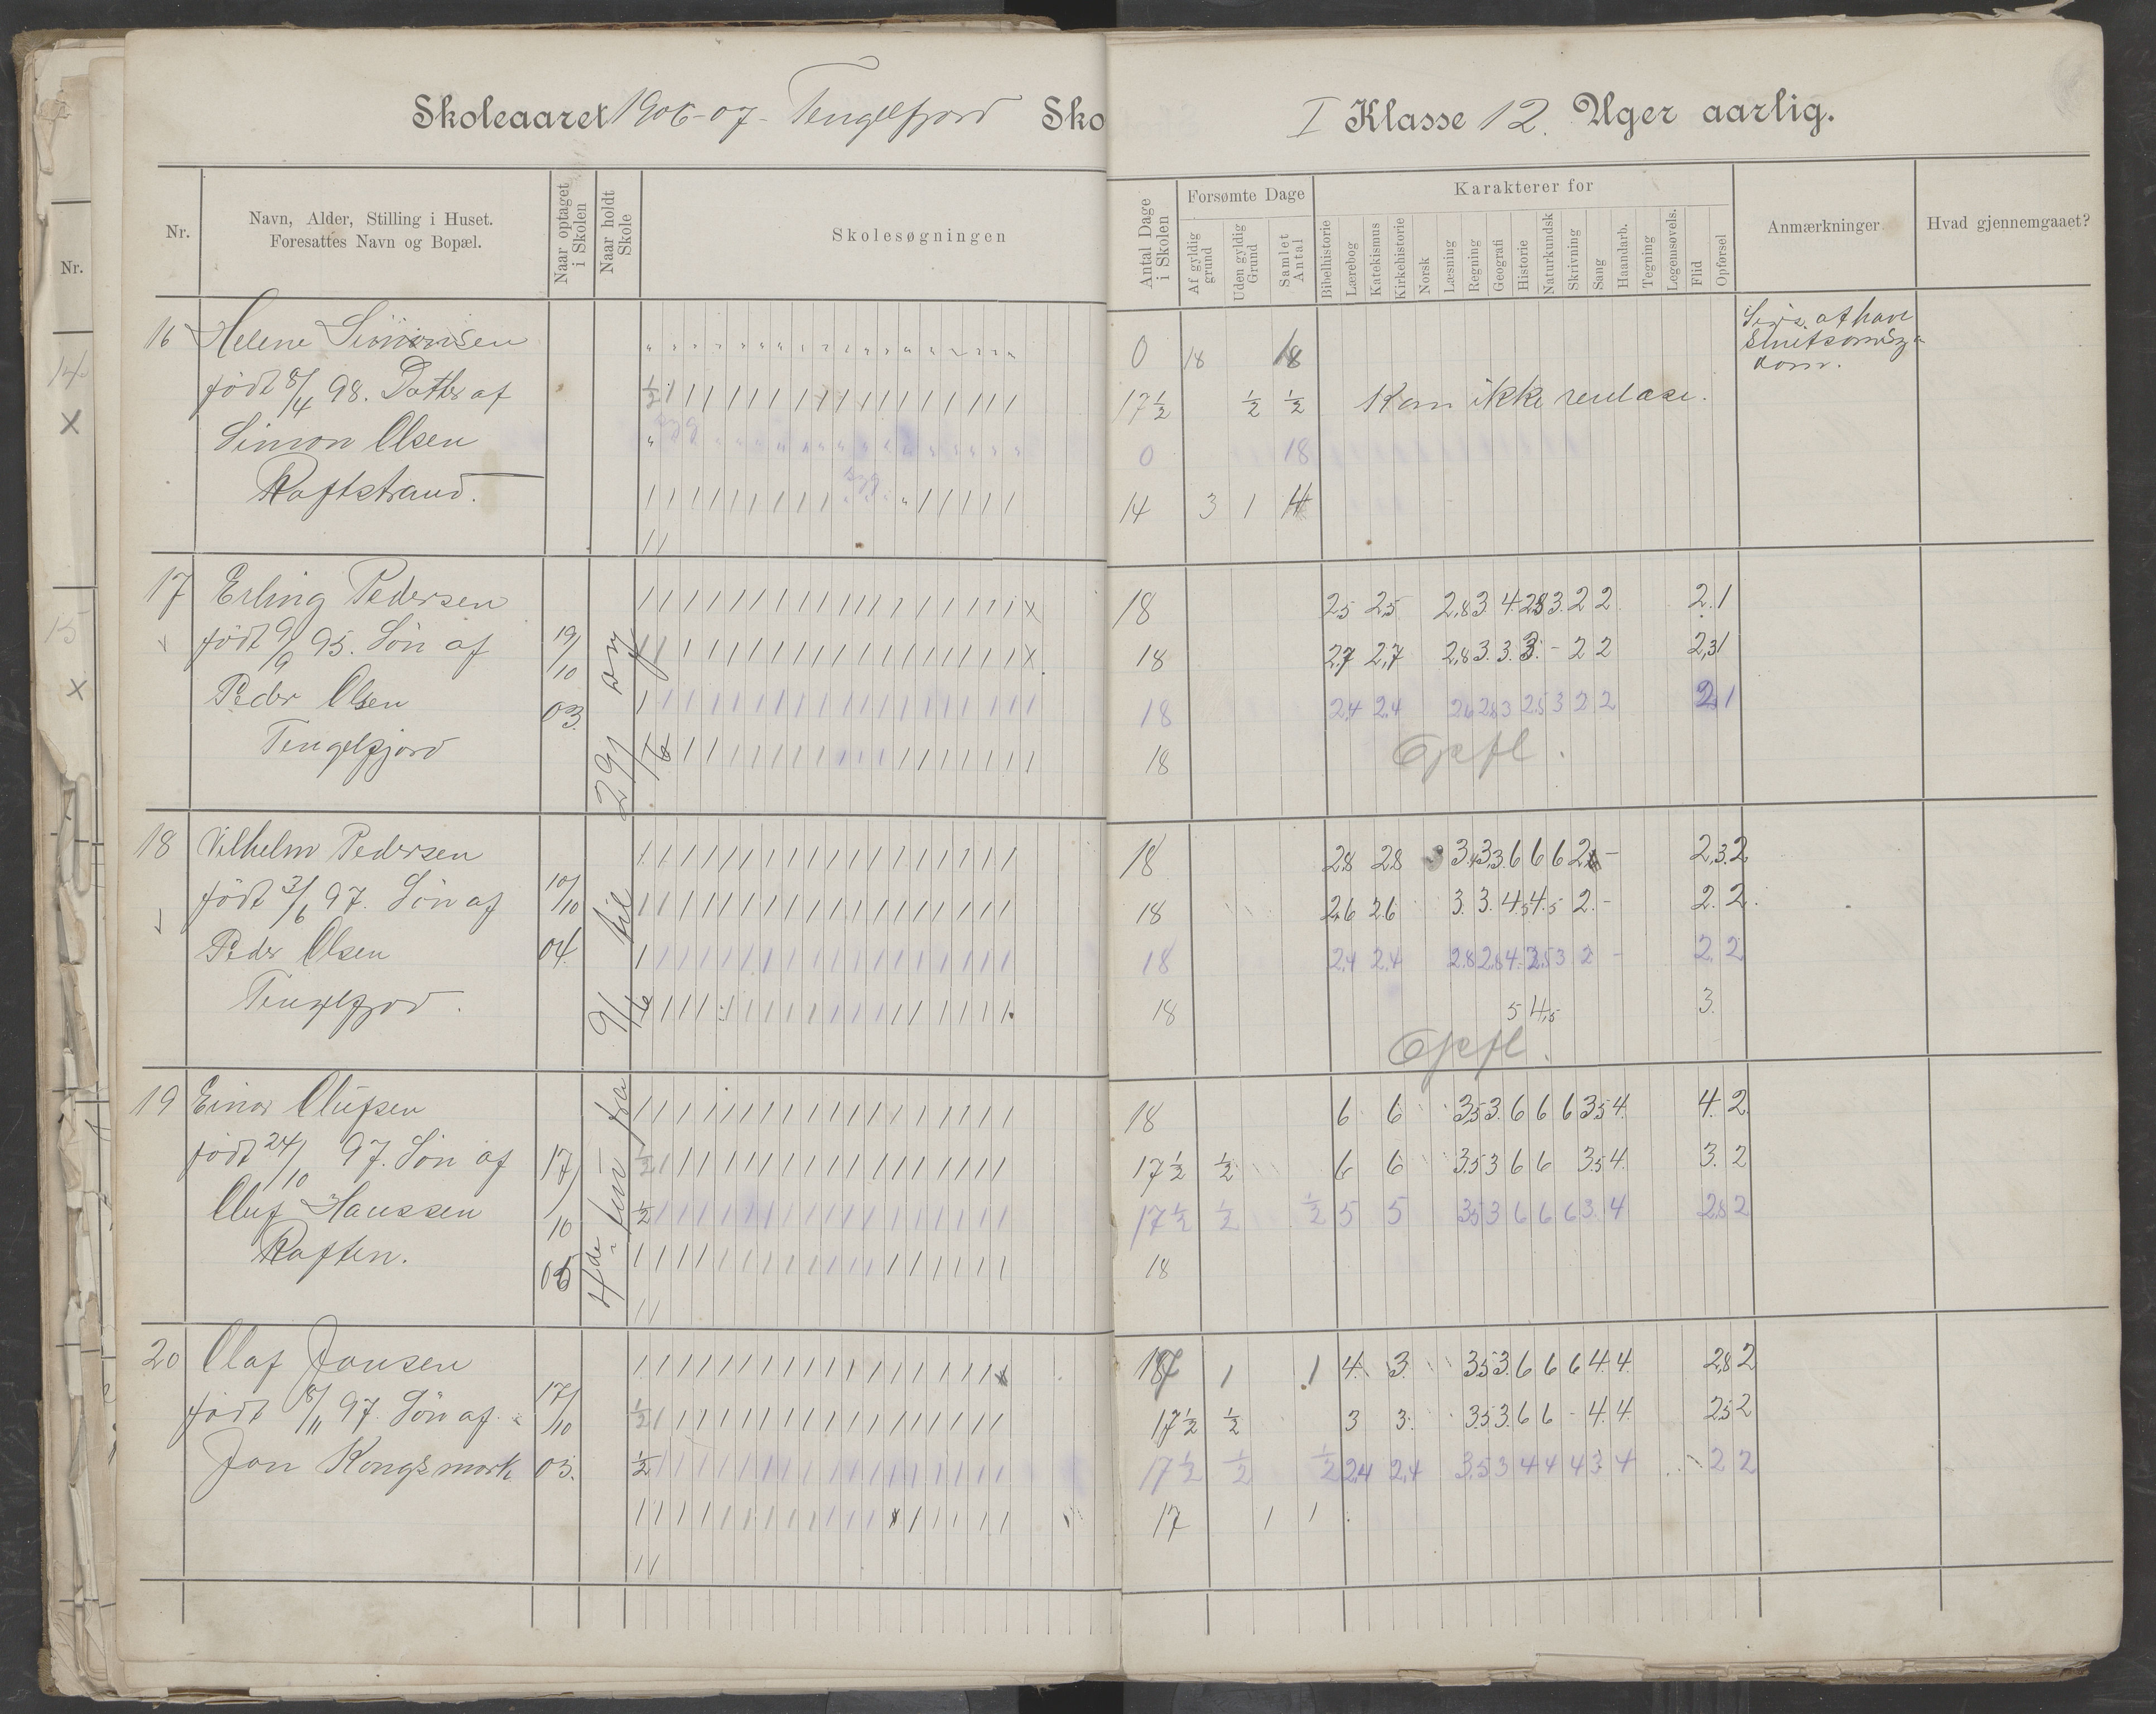 Skoleaaret 1906-07 - Tengelfjord Sko
I Klasse 12. Uger aarlig.
Nr.
Nr. Navn, Alder, Stilling i Huset. Foresattes Navn og Bopæl.
Naar optaget i Skolen
Naar holdt Skole
Skolesøgningen
Antal Dage i Skolen
Forsømte Dage
Af gyldig grund
Uden gyldig Grund
Samlet Antal
Karakterer for
Bibelhistorie
Lærebog
Katekismus
Kirkehistorie
Norsk
Læsning
Regning
Geografi
Historie
Naturkundsk
Skrivning
Sang
Haandarb.
Tegning
Legemsøvels.
Flid
Opførsel
Anmærkninger
Hvad gjennemgaaet?
14
X
15
X
16 Helene Simonsen 0 18 18
født 8/4 98. Datter af 17½ ½ ½ Kan ikke
Simon Olsen 0 18
Raftstrand. 14 3 1 4
at have
dom.
17 Erling Pedersen 18 2,5 2,5 2,8 3 4 2,8 3. 2 2 2. 1
født 9/9 95. Søn af 19/10 18 2,7 2,7 2,8 3. 3. 3. - 2 2 2,3 1
Peder Olsen 03. 18 2,4 2,4 2,6 2,8 3 2,5 3 2 2 2 1
Tengelfjord 18 Opfl.
18 Vilhelm Pedersen 18 2,8 2,8 3,4 3,3 6 6 6 2 - 2,3. 2
født 3/6 97. Søn af 10/10 18 2,6 2,6 3. 3. 4,5 4,5 2. - 2. 2.
Peder Olsen 04. 18 2,4 2,4 2,8 2,8 4 3,5 3 2 - 2. 2
Tengelfjord. 18 5 4,5 3.
Opfl.
4de - fra 9/6 til 29/6
19 Einar Olufsen 18 6 6 3,5 3. 6 6 6 3,5 4. 4. 2
født 24/10 97. Søn af 17/10 17½ ½ 6 6 3,5 3 6 6 3,5 4. 3. 2
Oluf Hanssen 05 17½ ½ ½ 5 5 3,5 3 6 6 6 3. 4 2,8 2
Raften. 18
20 Olaf Jonsen 17 1 1 4. 3. 3,5 3. 6 6 6 4. 4. 2,8 2
født 8/11 97. Søn af 17/10 17½ ½ 3 3. 3,5 3. 6 6 - 4. 4. 2,5 2
Jon Kongsmork 03. 17½ ½ ½ 2,4 2,4 3,5 3 4 4 4 3 4 2 2
17 1 1